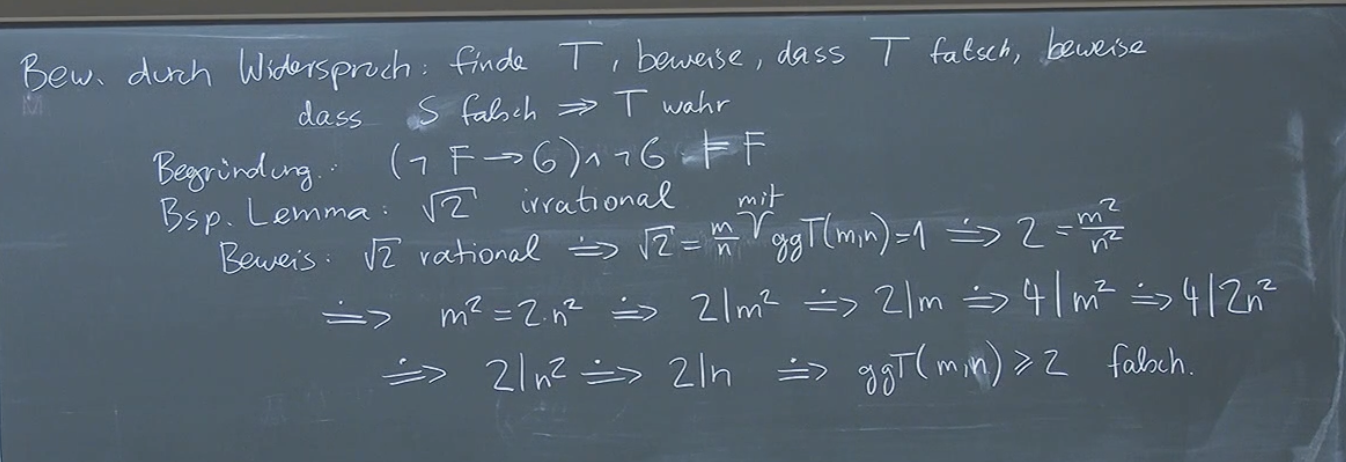 Bew. durch Widerspruch: finde T, beweise, dass T falsch, beweise
dass S falsch ⇒ T wahr
Begründung: (¬F→G)∧¬G ⊨ F
Bsp. Lemma: √2 irrational
Beweis: √2 rational ⇒̇ √2 = m/n mit ggT(m,n)=1 ⇒̇ 2 = m²/n²
⇒̇ m² = 2·n² ⇒̇ 2|m² ⇒̇ 2|m ⇒̇ 4|m² ⇒̇ 4|2n²
⇒̇ 2|n² ⇒̇ 2|n ⇒̇ ggT(m,n) ⩾ 2 falsch.